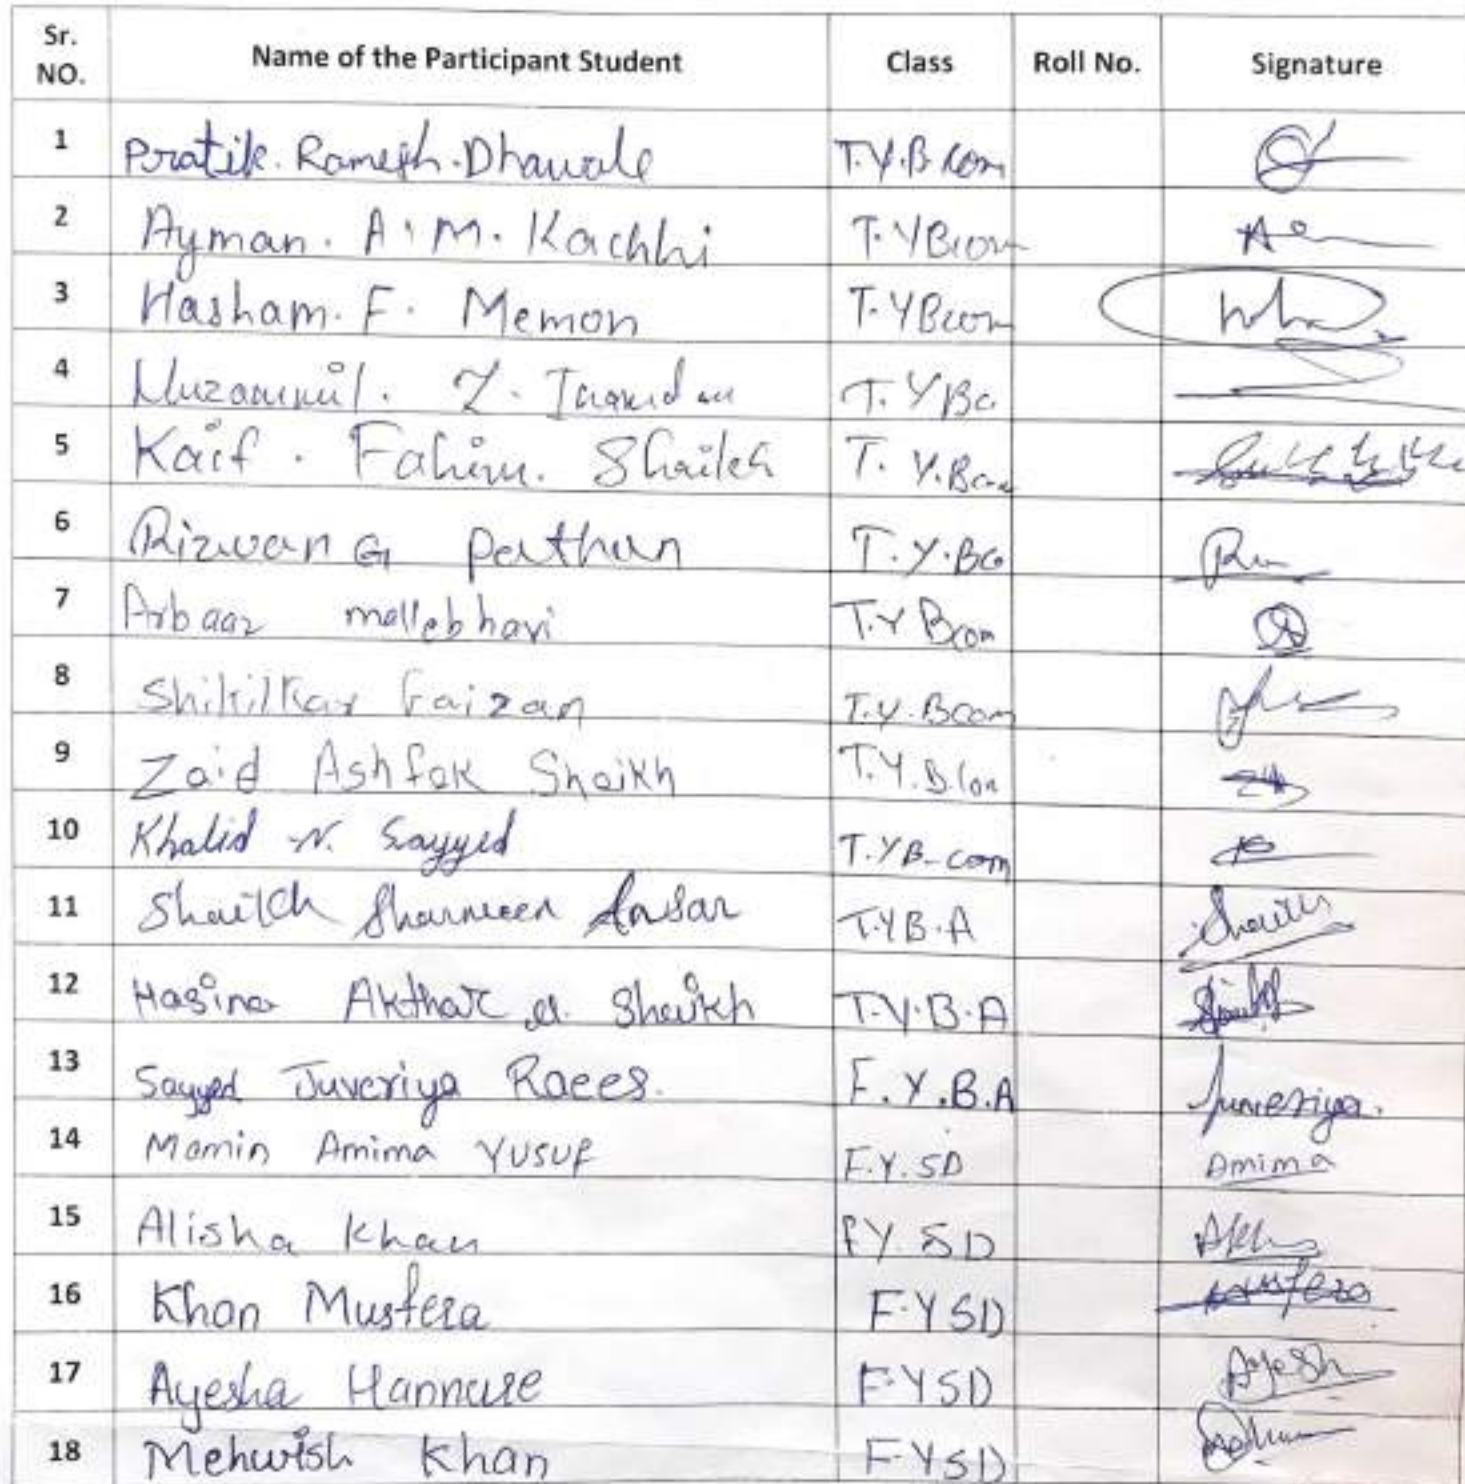 Sr. NO. Name of the Participant Student Class Roll No. Signature
1 Pratik. Ramesh. Dhawale T.Y.B.com
2 Ayman. A. M. Kachhi T.YBcom
3 Hasham. F. Memon T.YBcom
4 Muzammil. Z. Inamdar T.YBc
5 Kaif. Fahim. Shaikh T.Y.Bcom
6 Rizwan G Pathan T.Y.BCo
7 Arbaaz mallebhavi T.Y Bcom
8 Shikilkar Faizan T.Y.Bcom
9 Zaid Ashfak Shaikh T.Y.B.Com
10 Khalid N. Sayyed T.YB-com
11 Shaikh Sharmeen Ansar T.YB.A Shaikh
12 Hasina Akthar a. Shaikh T.Y.B.A Shaikh
13 Sayyed Juveriya Raees. F.Y.B.A Juveriya.
14 Momin Amima YUSUF F.Y.SD Amima
15 Alisha Khan FY.SD AKhan
16 Khan Musfera F.YSD Musfera
17 Ayesha Hannure F.YSD Ayesh
18 Mehwish Khan F.YSD